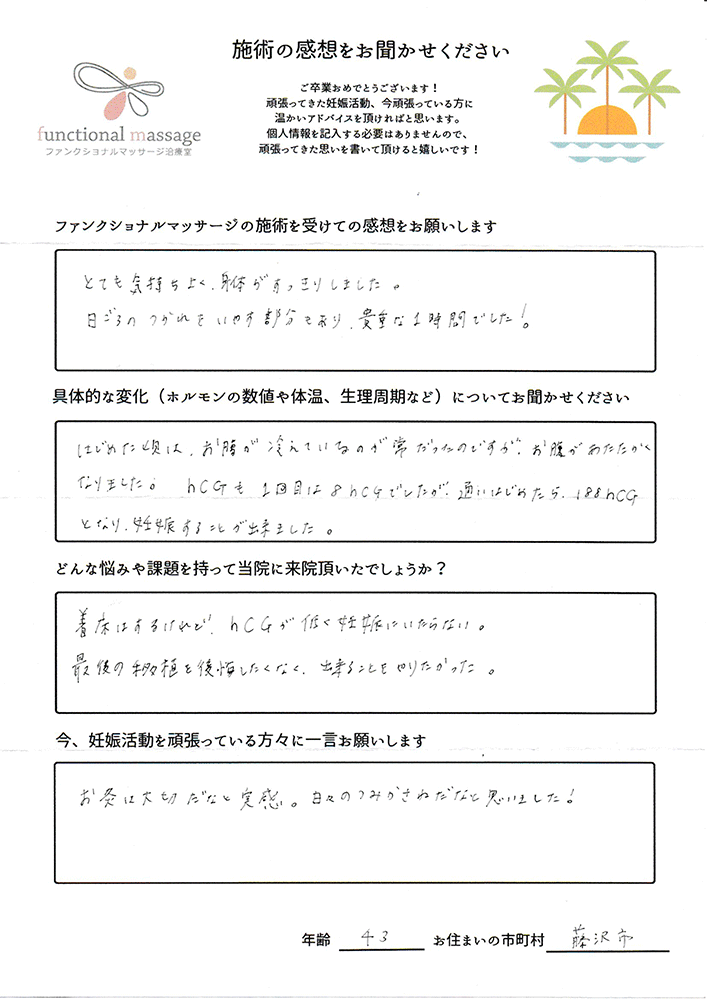 施術の感想をお聞かせください
ご卒業おめでとうございます！
頑張ってきた妊娠活動、今頑張っている方に
温かいアドバイスを頂ければと思います。
個人情報を記入する必要はありませんので、
頑張ってきた思いを書いて頂けると嬉しいです！
functional massage
ファンクショナルマッサージ治療室
ファンクショナルマッサージの施術を受けての感想をお願いします
とても気持ちよく、身体がすっきりしました。
日ごろのつかれをいやす部分であり、貴重な1時間でした！
具体的な変化（ホルモンの数値や体温、生理周期など）についてお聞かせください
はじめた頃は、お腹が冷えているのが常だったのですが、お腹があたたかく
なりました。hCGも1回目は8hCGでしたが、通いはじめたら、188hCG
となり、妊娠することが出来ました。
どんな悩みや課題を持って当院に来院頂いたでしょうか？
着床はするけれど、hCGが低く妊娠にいたらない。
最後の移植を後悔したくなく、出来ることをやりたかった。
今、妊娠活動を頑張っている方々に一言お願いします
お灸は大切だなと実感。日々のつみかさねだなと思いました！
年齢 43 お住まいの市町村 藤沢市